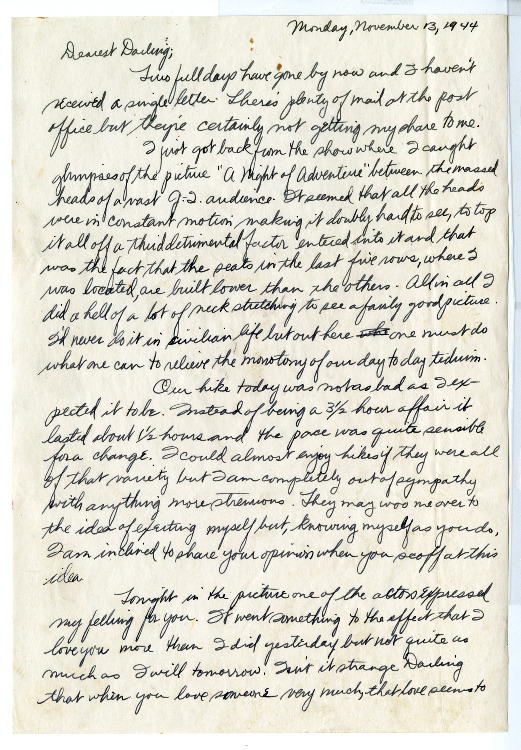 Monday, November 13, 1944
Dearest Darling;
Two full days have gone by now and I haven't
received a single letter. There's plenty of mail at the post
office but they're certainly not getting my share to me.
I just got back from the show where I caught
glimpses of the picture "A Night of Adventure" between the massed
heads of a vast G-I audience. It seemed that all the heads
were in constant motion making it doubly hard to see, to top
it all off a third detrimental factor entered into it and that
was the fact that the seats in the last five rows, where I
was located, are built lower than the others. All in all I
did a hell of a lot of neck stretching to see a fairly good picture.
I'd never do it in civilian life but out here one must do
what one can to relieve the monotony of our day to day tedium.
Our hike today was not as bad as I ex-
pected it to be. Instead of being a 3½ hour affair it
lasted about 1½ hours and the pace was quite sensible
for a change. I could almost enjoy hikes if they were all
of that variety but I am completely out of sympathy
with anything more strenuous. They may woo me over to
the idea of exerting myself but, knowing myself as you do,
I am inclined to share your opinion when you scoff at this
idea.
Tonight in the picture one of the actors expressed
my felling for you. It went something to the effect that I
love you more than I did yesterday but not quite as
much as I will tomorrow. Isn't it strange Darling
that when you love someone very much, that love seems to